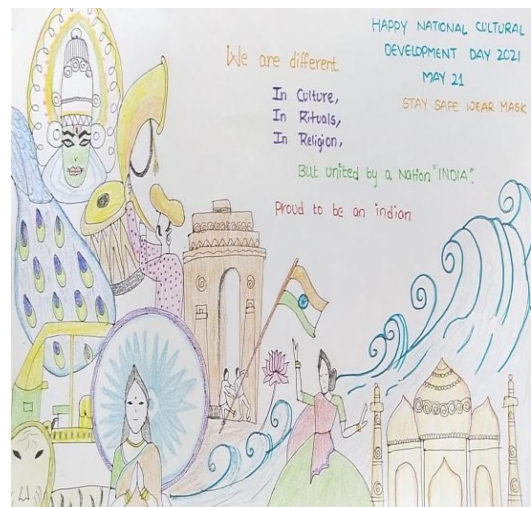 HAPPY NATIONAL CULTURAL
DEVELOPMENT DAY 2021
MAY 21
STAY SAFE WEAR MASK
We are different
In Culture,
In Rituals,
In Religion,
But united by a Nation "INDIA".
Proud to be an indian